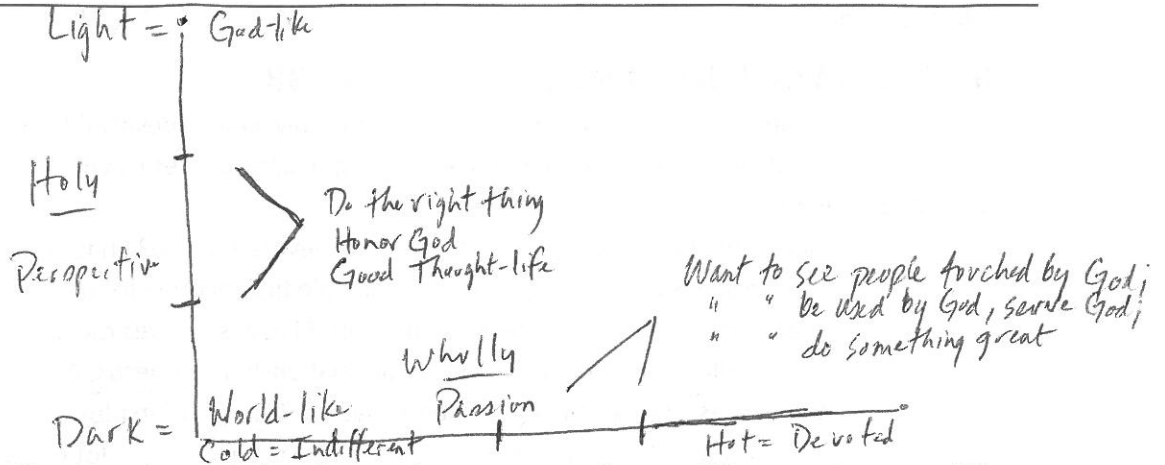 Light = God-like
Holy
Perspective
Do the right thing
Honor God
Good Thought-life
Want to see people touched by God;
" " be used by God, serve God;
" " do something great
Wholly
Passion
World-like
Dark =
Cold = Indifferent
Hot = Devoted